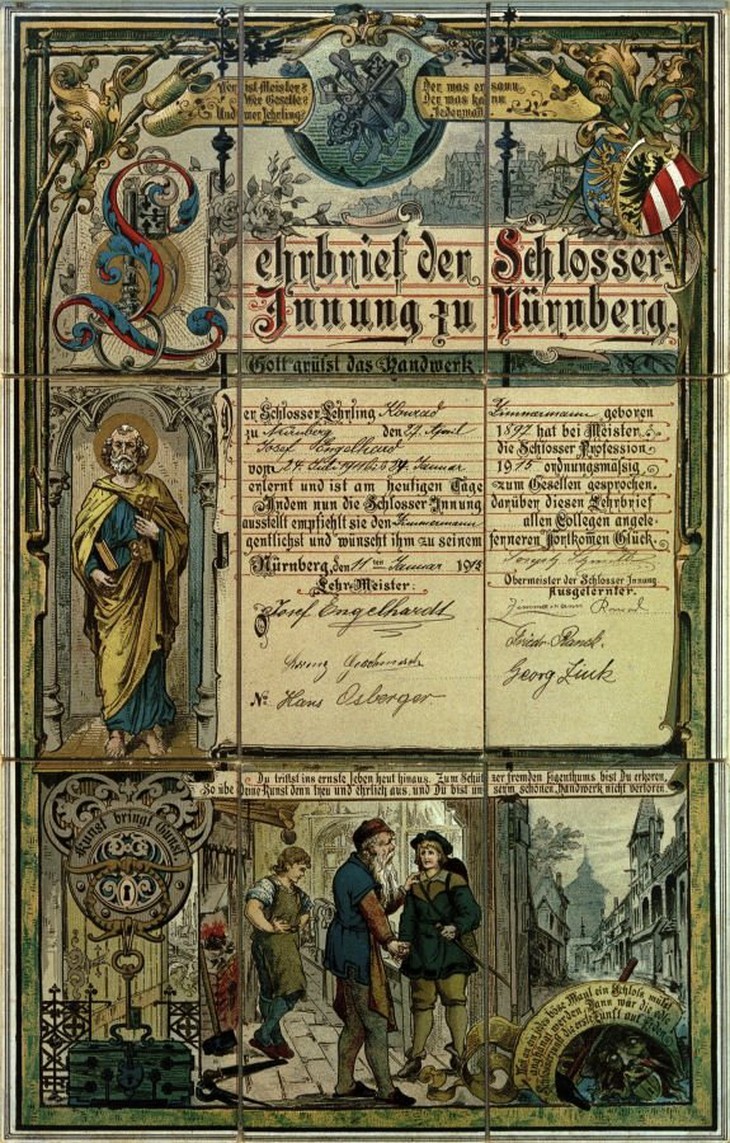 Wer ist Meister? Der was ersann.
Wer Geselle? Der was kann.
Und wer Lehrling? Jedermann.
Lehrbrief der Schlosser-
Innung zu Nürnberg.
Gott grüsst das Handwerk
Der Schlosser Lehrling Konrad Zimmermann geboren
zu Nürnberg den 27. April 1897 hat bei Meister
Josef Engelhard die Schlosser Profession
vom 24. Juli 1911 bis 24. Januar 1915 ordnungsmäsig
erlernt und ist am heutigen Tage zum Gesellen gesprochen.
Indem nun die Schlosser Innung darüber diesen Lehrbrief
ausstellt empfiehlt sie den Zimmermann allen Collegen angele-
gentlichst und wünscht ihm zu seinem ferneren Fortkomen Glück.
Nürnberg, den 11ten Januar 1915
Obermeister der Schlosser Innung
Lehr-Meister: Ausgelernter.
Josef Engelhardt Zimmermann Konrad
Friedr.
Georg Zink
No. Hans Osberger
Du trittst ins ernste Leben heut hinaus. Zum Schützer fremden Eigenthums bist Du erkoren,
So übe Deine Kunst denn treu und ehrlich aus, und Du bist unserm schönen Handwerk nicht verloren.
Kunst bringt Gunst.
an jedes böse Maul ein Schloss müsst
angehängt werden, Dann wär die edle
Schlosserzunft die erste Zunft auf Erden